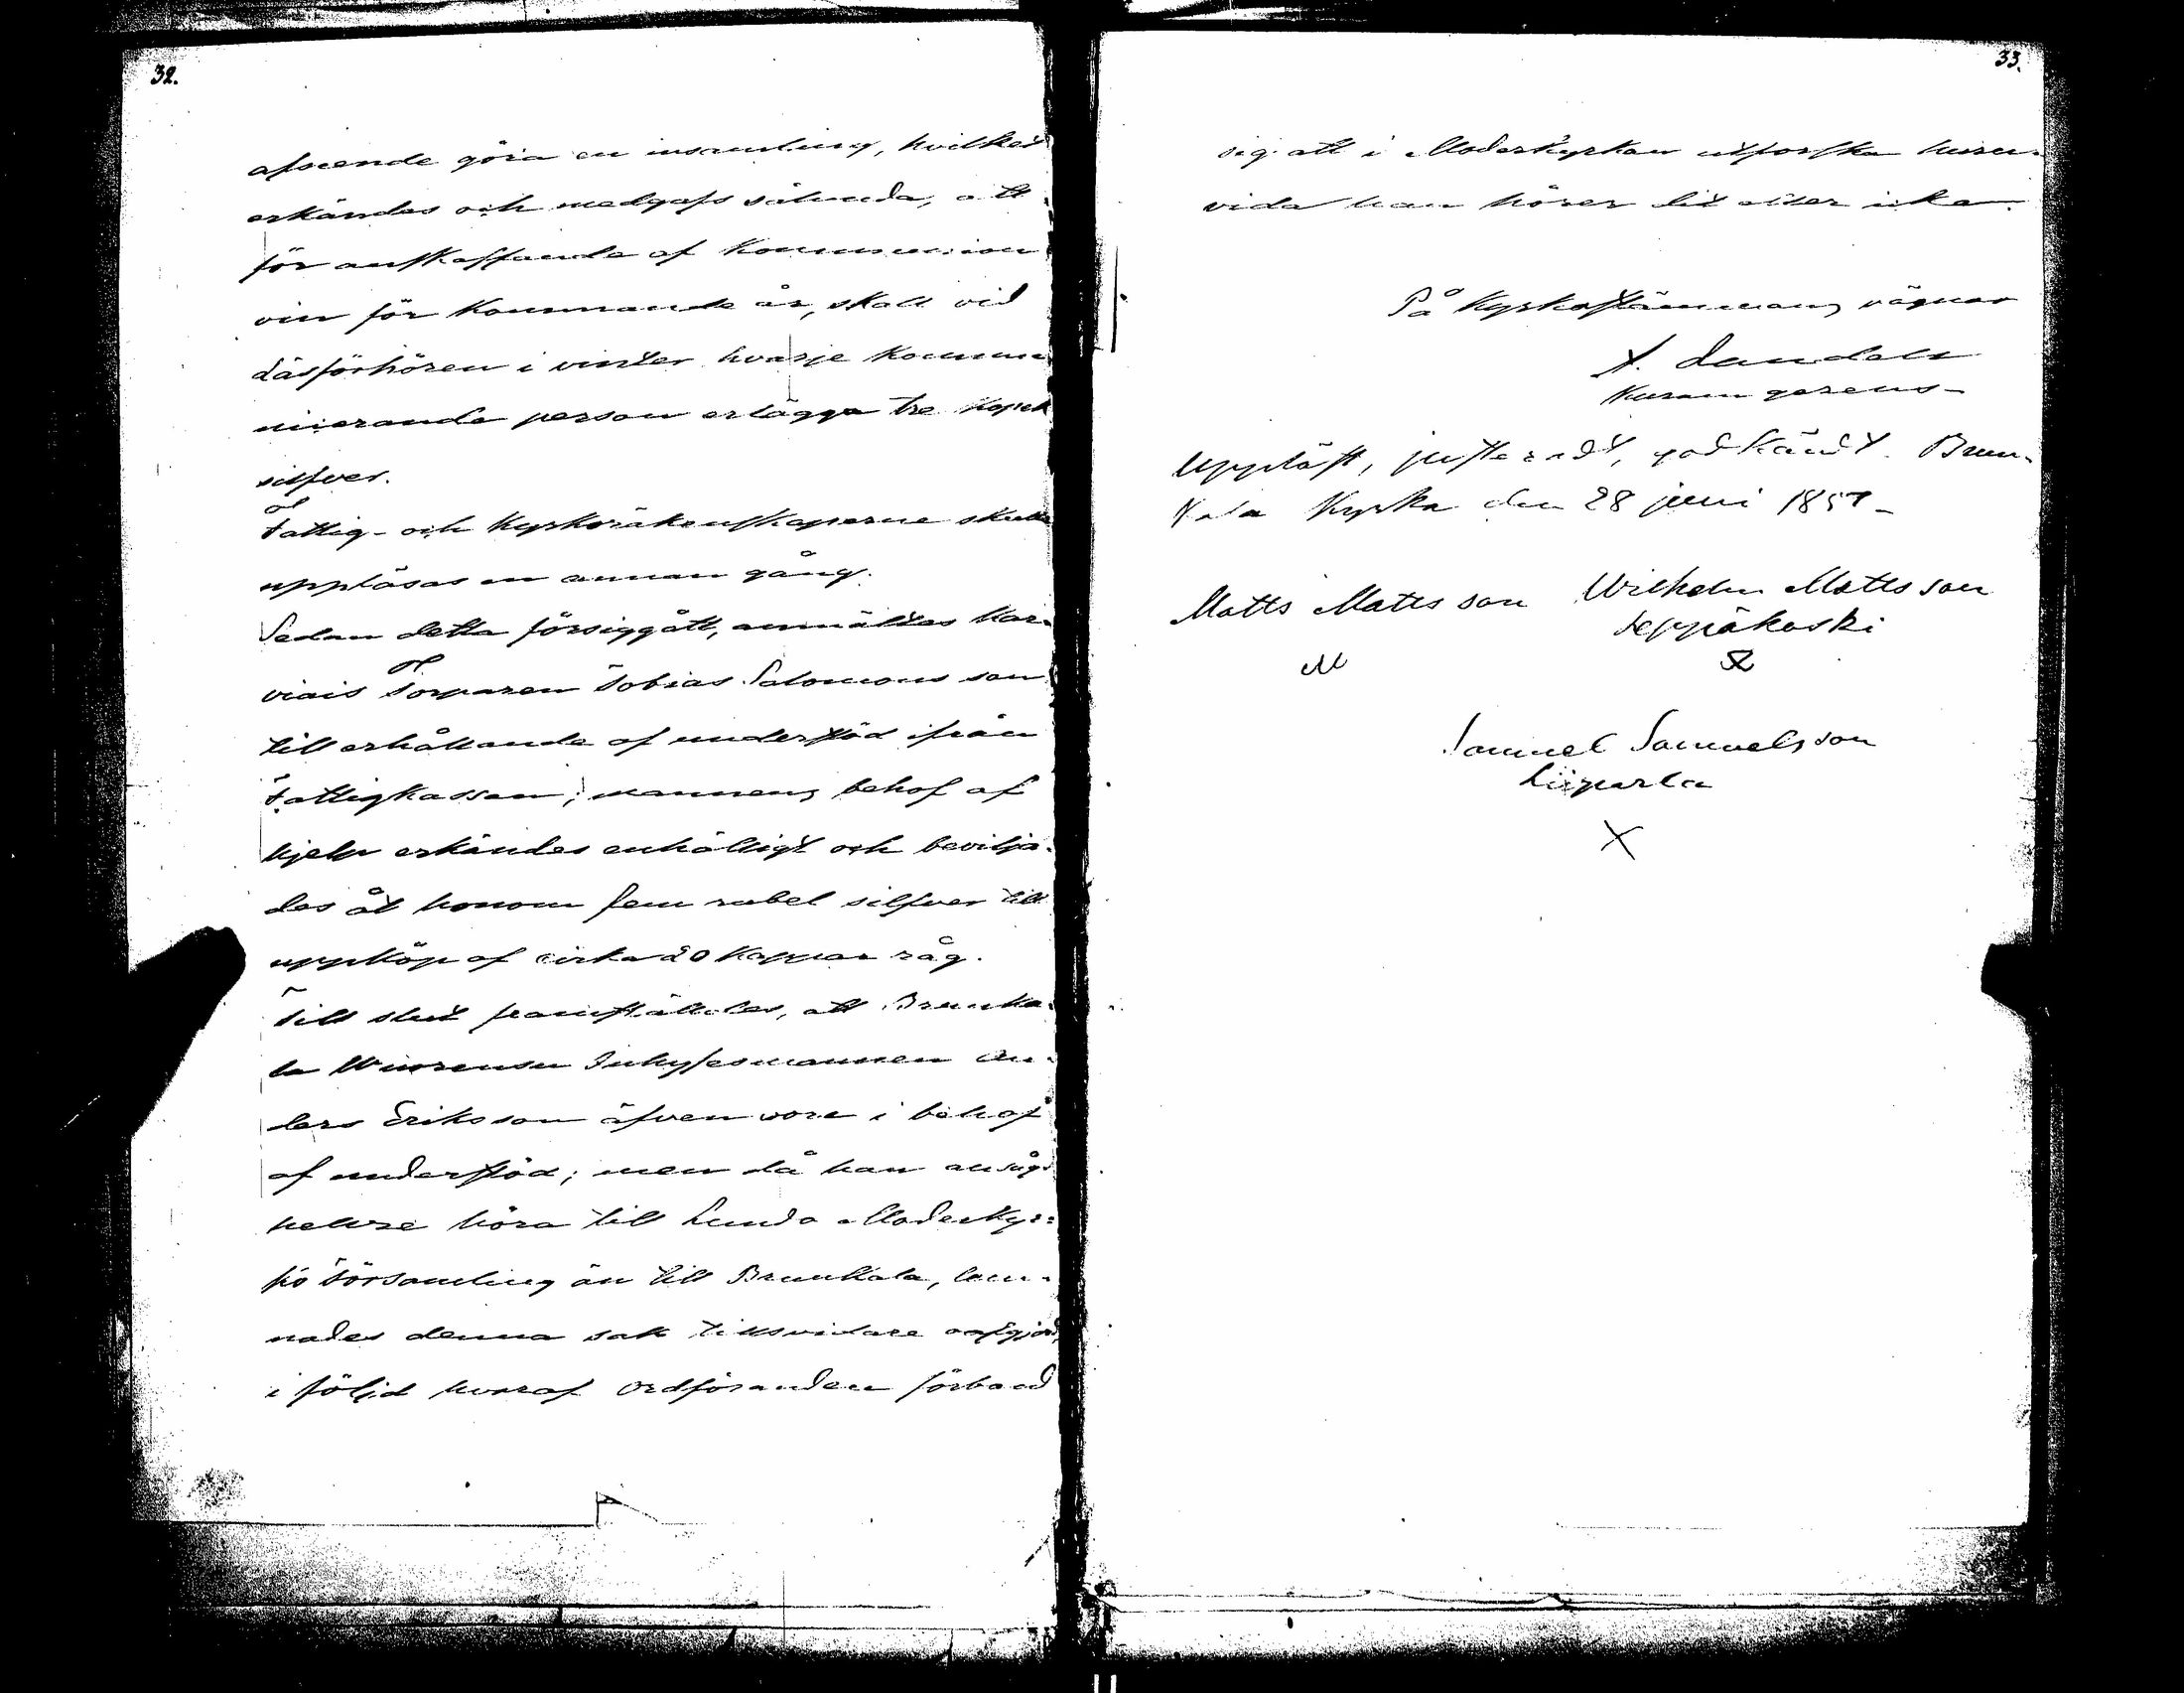 32.
afseende göra en insamling, hvilket
erkändes och medgafs sålunda, att
för anskaffande af kommunion
vin för kommande år, skall vid
Läsförhören i vinter hvarje kommu
nicerande person erlägga tre kopek
silfver.
Fattig- och Kyrkoräkenskaperne skulle
uppläsas en annan gång.
Sedan detta försiggått, anmältes Kar-
viais Torparen Tobias Salomons son
till erhållande af understöd ifrån
Fattigkassan; mannens behof af
hjelp erkändes enhälligt och bevilja-
des åt honom fem rubel silfver till
uppköp af cirka 20 kappar råg.
Till slut framställdes, att Brunka-
la Inhysesmannen An-
ders Eriksson äfven vore i behof
af understöd; men då han ansågs
hellre höra till Lundo Moderkyr-
ko Församling än till Brunkala, lem-
nades denna sak tillsvidare oafgjord,
i följd hvaraf Ordföranden förband
33.
sig att i Moderkyrkan utforska huru-
vida han hörer dit eller icke.
På Kyrkostämmans vägnar
A. Landell
Kuram gerens-
Uppläst, justeradt, godkändt. Brun-
kala Kyrka den 28 juni 1857-
Matts Matts son Wilhelm Matts son
Seppäkoski
M
Samuel Samuels son
Liiparla
X